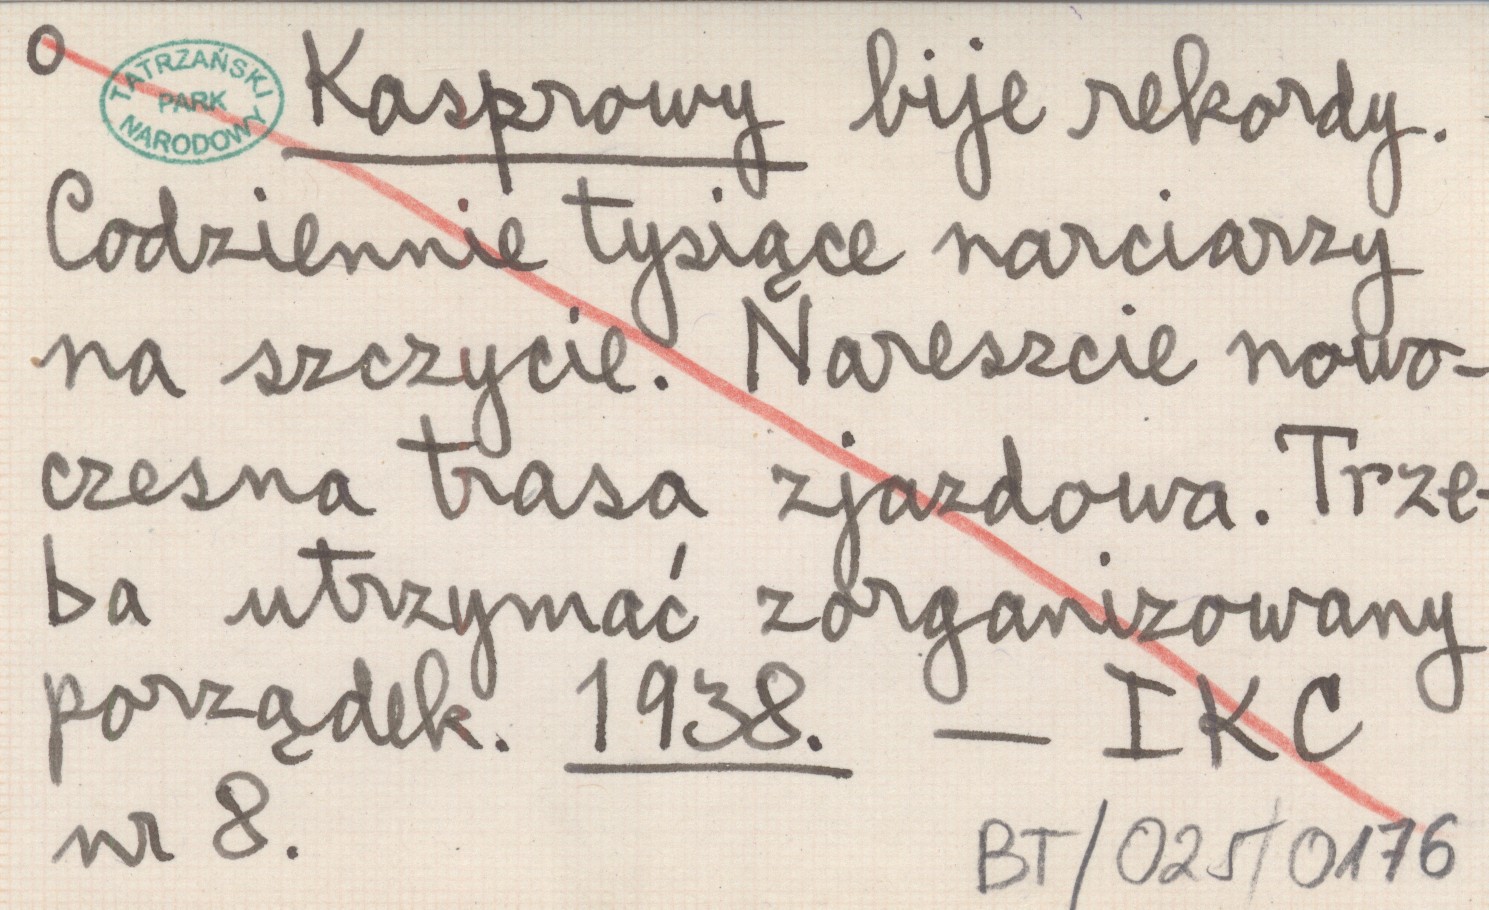 O TATRZAŃSKI PARK NARODOWY Kasprowy bije rekordy.
Codziennie tysiące narciarzy
na szczycie. Nareszcie nowo-
czesna trasa zjazdowa. Trze-
ba utrzymać zorganizowany
porządek. 1938. — IKC
nr 8.
BT/025/0176